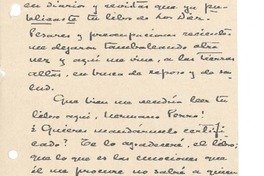 en diarios y revistas que ya pu-
blicaste tu libro de los Diaz.
Pesares y preocupaciones recientes
me dejaron tambaleando ahora
vez y aquí me vine, a las tierras
altas, en busca de reposo y de sa-
lud.
Que bien me vendría leer tu
libro aquí, hermano
¿Quieres mandármelo certifi-
cado? Te lo agradeceré, el libro,
que lo que es las emociones que
él me procure no sabré a quien